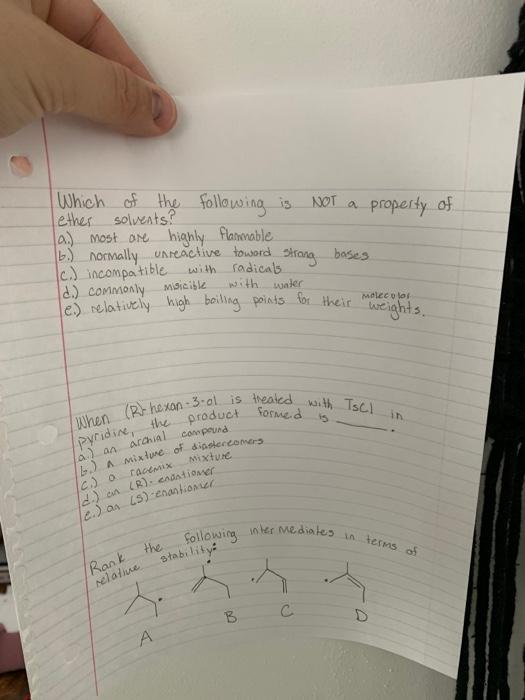 Which of the following is NOT a property of
ether solvents?
a.) most are highly flammable
b.) normally unreactive toward strong bases
c.) incompatible with radicals
d.) commonly miscible with water
e.) relatively high boiling points for their molecular weights.
When (R)-hexan-3-ol is treated with TsCl in
pyridine, the product formed is ______.
a.) an archial compound
b.) A mixture of diastereomers
c.) a racemix mixture
d.) an (R)-enantiomer
e.) an (S)-enantiomer
Rank the following intermediates in terms of
relative stability:
A B C D